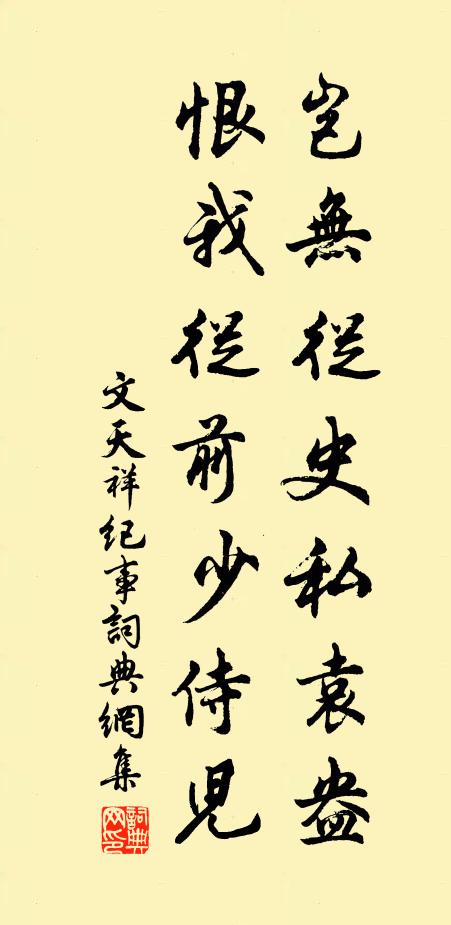 豈無從史私袁盎
恨我從前少侍兒
文天祥紀事詞典網集
詞典網印